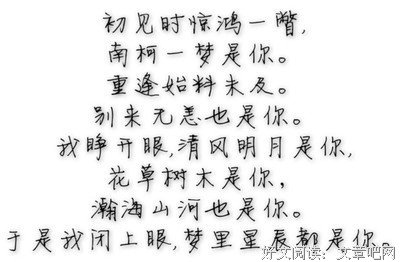 初见时惊鸿一瞥,
南柯一梦是你。
重逢始料未及。
别来无恙也是你。
我睁开眼,清风明月是你,
花草树木是你,
瀚海山河也是你。
于是我闭上眼,梦里星辰都是你。
好文阅读：文章吧网